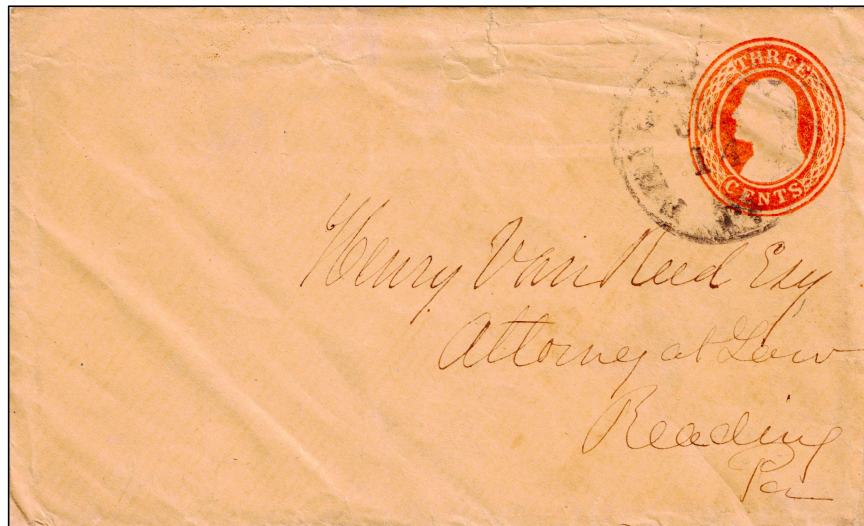 THREE
CENTS
Henry Van Reed Esq
Attorney at Law
Reading
Pa